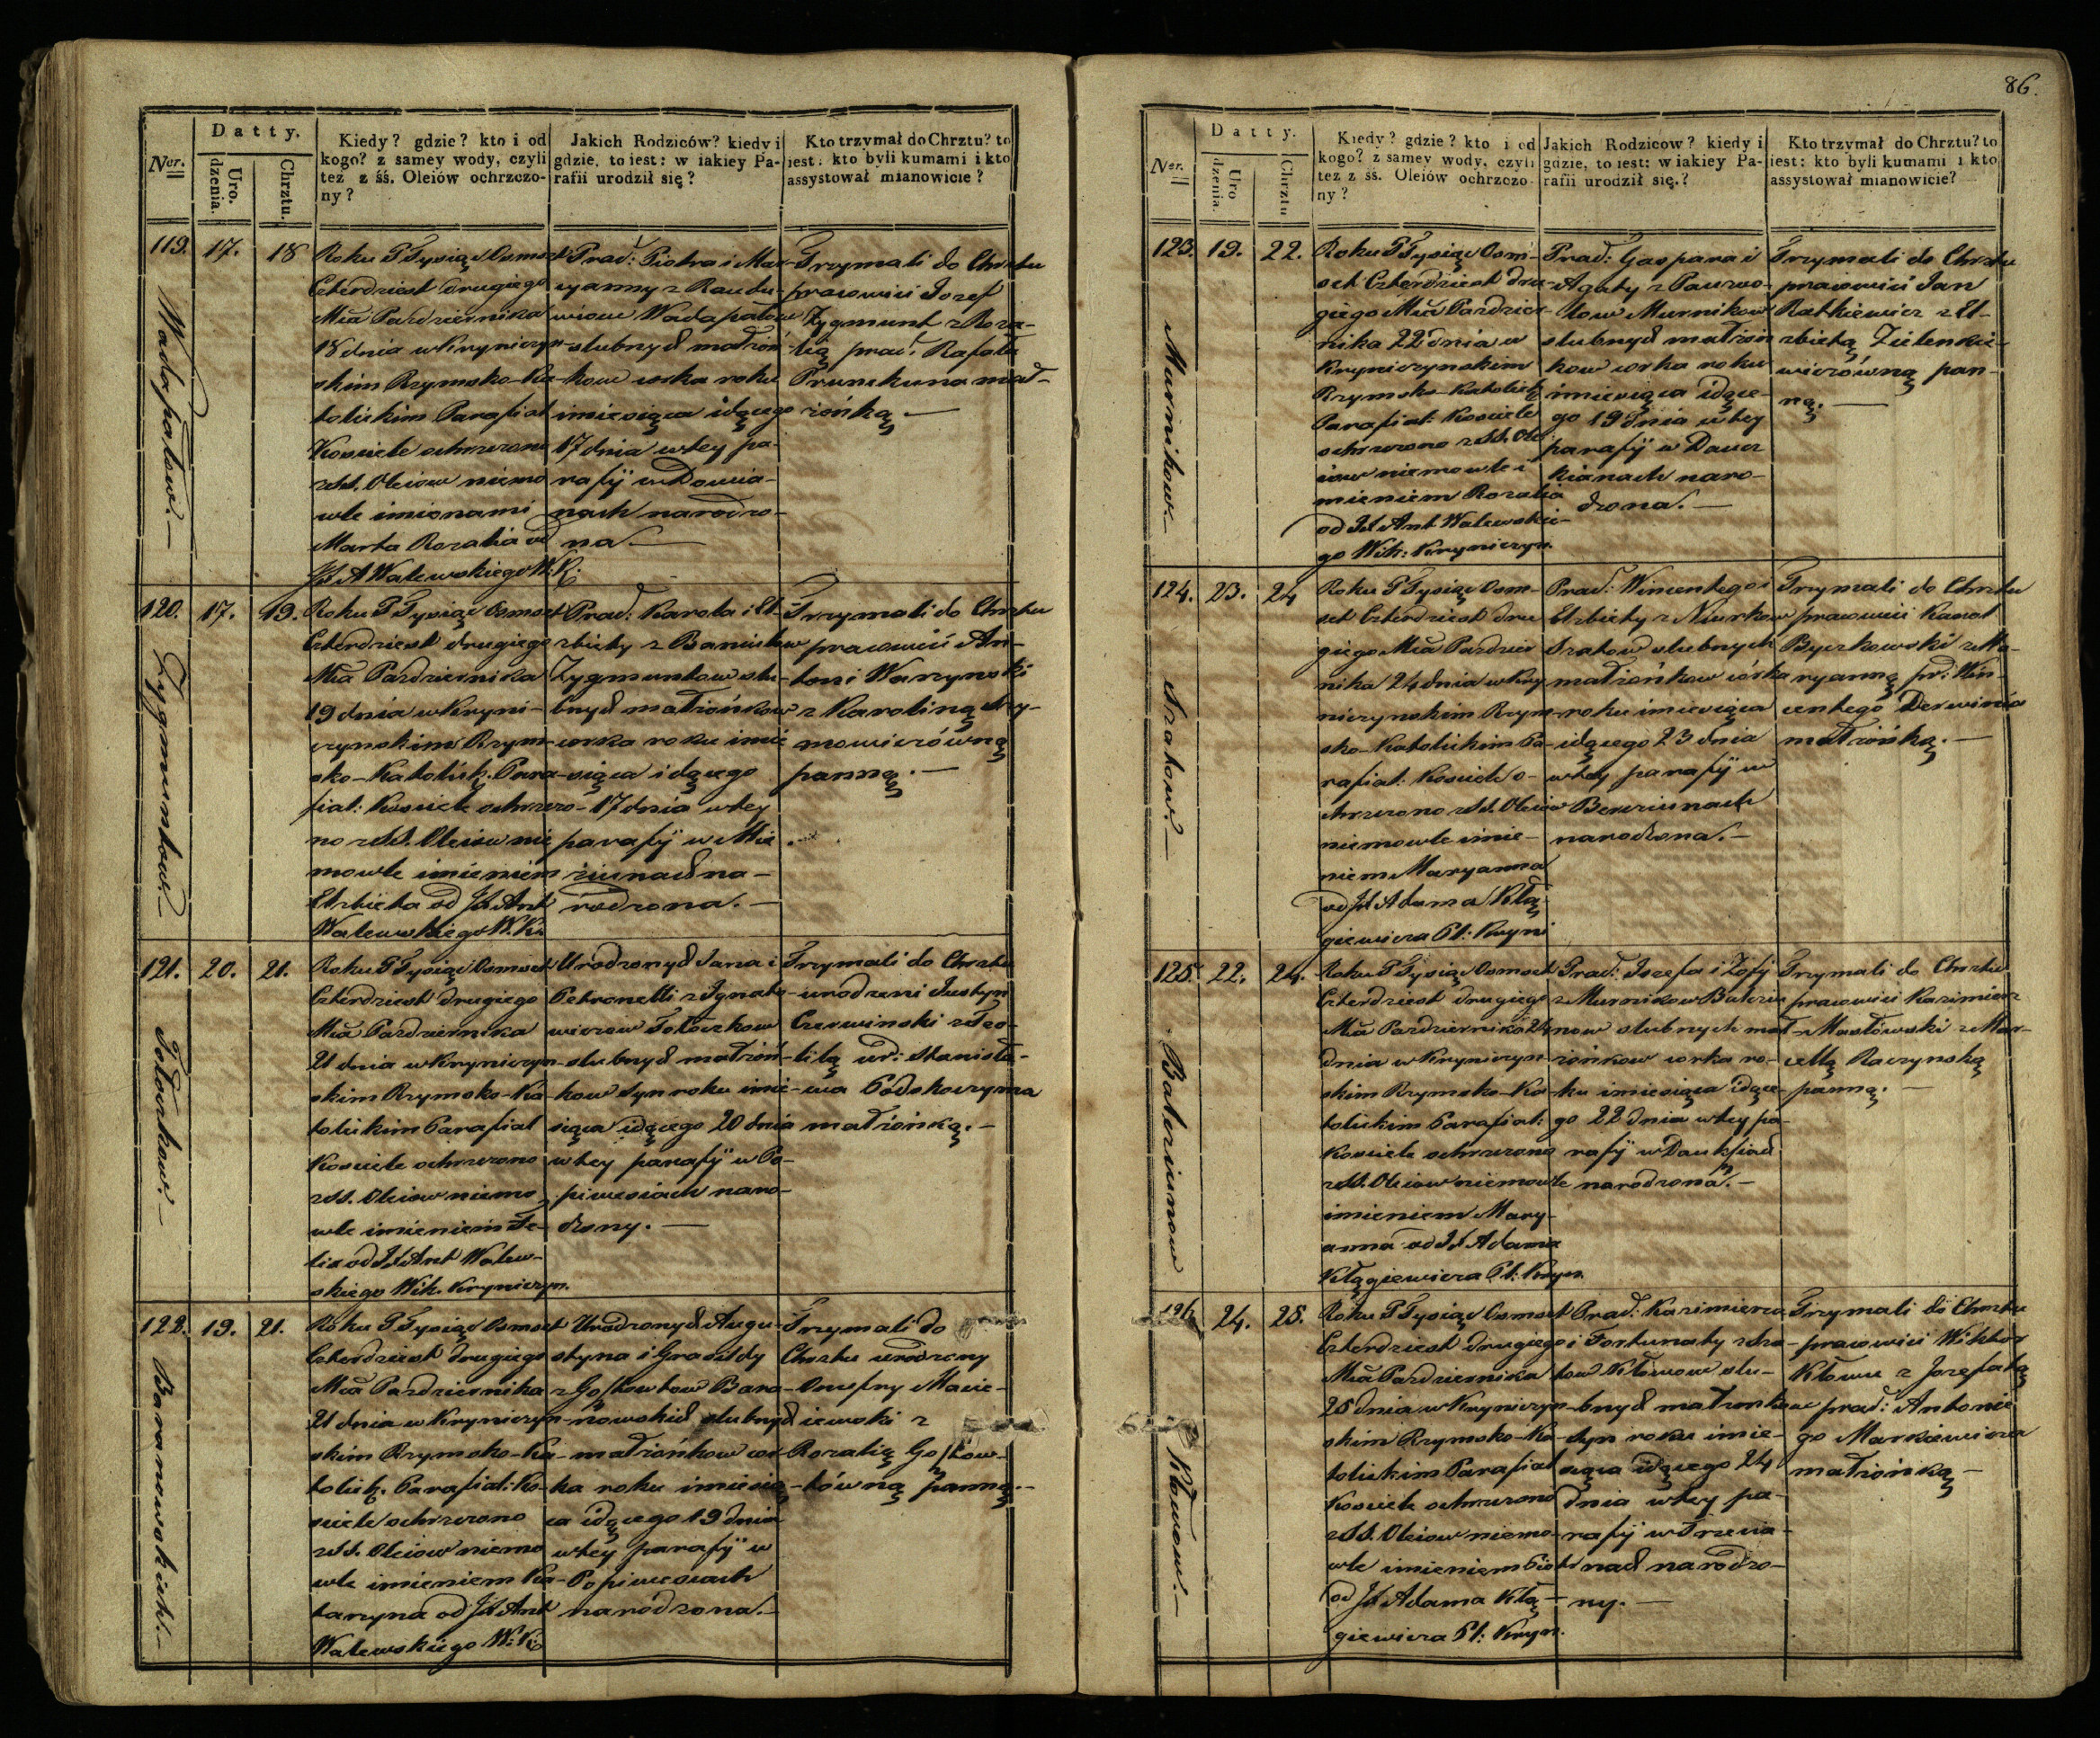 86.
Ner.
Datty.
Urodzenia.
Chrztu.
Kiedy? gdzie? kto i od
kogo? z samey wody, czyli
też z śś. Oleiów ochrzczo-
ny?
Jakich Rodziców? kiedy i
gdzie, to iest: w iakiey Pa-
rafii urodził się?
Kto trzymał do Chrztu? to
iest: kto byli kumami i kto
assystował mianowicie?
119. 17. 18
Wadapalow.—
Roku P Tysiąc Osmset
Czterdziest drugiego
Mca Pazdziernika
18 dnia w Kryniczyn-
skim Rzymsko-Ka-
tolickim Parafial
Kosciele ochrzczono
z SS. Oleiow niemo
wle imionami
Marta Rozalia od
JX A Walewskiego W: K.
Prac: Piotra i Mar-
yanny z Raudu-
wiow Wadapalow
slubnych małżon-
kow corka roku
i miesiąca idącego
17 dnia w tey pa-
rafij w Dowia-
nach narodzo-
na.—
Trzymali do Chrztu
pracowici Jozef
Zygmunt z Roza-
lią prac. Rafała
Prunckuna mał-
żonką.—
120. 17. 19.
Zygmuntow.—
Roku P Tysiąc Osmset
Czterdziest drugiego
Mca Pazdziernika
19 dnia w Kryni-
czynskim Rzym-
sko-Katolick. Para-
fial: Kosciele ochrzczo-
no z SS. Oleiow nie
mowle imieniem
Elzbieta od JX Ant
Walewskiego W. K.
Prac: Karola i El-
zbiety z Baniulow
Zygmuntow slu-
bnych małżonkow
corka roku i mie
siąca idącego
17 dnia w tey
parafij w Mie
ziunach na-
rodzona.—
Trzymali do Chrztu
pracowici An-
toni Warzynski
z Karoliną Szy-
mowiczówną
panną.—
121. 20. 21.
Tołoczkow.—
Roku P Tysiąc Osmset
Czterdziest drugiego
Mca Pazdziernika
21 dnia w Krynicczyn-
skim Rzymsko-Ka-
tolickim Parafial
Kosciele ochrzczono
z SS. Oleiow niemo
wle imieniem Fe-
lix od JX Ant Walew-
skiego Wik. Kryniczyn.
Urodzonych Jana i
Petronelli z Ignato-
wiczow Tołoczkow
slubnych małżon-
kow syn roku i mie-
siąca idącego 20 dnia
w tey parafij w Po-
piwesiach naro-
dzony.—
Trzymali do Chrztu
urodzeni Justyn
Czerwinski z Teo-
filą ur: Stanisła-
wa Podskoczyma
małżonką.—
122. 19. 21.
Baranowskich.—
Roku P Tysiąc Osmset
Czterdziest drugiego
Mca Pazdziernika
21 dnia w Kryniczyn-
skim Rzymsko-Ka-
tolick. Parafial: Ko-
sciele ochrzczono
z SS. Oleiow niemo
wle imieniem Ka-
tarzyna od JX Ant
Walewskiego W: K:
Urodzonych Augu-
styna i Grasildy
z Gosztowtow Bara-
nowskich slubnych
małżonkow cor-
ka roku i miesią-
ca idącego 19 dnia
w tey parafij w
Popiwesiach
narodzona.—
Trzymali do
Chrztu urodzony
Onufry Macie-
iewski z
Rozalią Gosztow-
tówną panną.—
Ner.
Datty.
Urodzenia.
Chrztu
Kiedy? gdzie? kto i od
kogo? z samey wody, czyli
też z śś. Oleiów ochrzczo-
ny?
Jakich Rodzicow? kiedy i
gdzie, to iest: w iakiey Pa-
rafii urodził się.?
Kto trzymał do Chrztu? to
iest: kto byli kumami i kto
assystował mianowicie?
123. 19. 22.
Murnikow.—
Roku P Tysiąc Osm-
set Czterdziest dru-
giego Mca Pazdzier-
nika 22 dnia w
Kryniczynskim
Rzymsko Katolick
Parafial: Kosciele
ochrzczono z SS. Ole
iow niemowle i
mieniem Rozalia
od JX Ant Walewskie-
go Wik: Kryniczyn.
Prac: Gaspara i
Agaty z Pauzo-
low Murnikow
slubnych małżon
kow corka roku
i miesiąca idące-
go 19 dnia w tey
parafij w Daucz
kianach naro-
dzona.—
Trzymali do Chrztu
pracowici Jan
Ratkiewicz z El-
zbietą Zielenkie-
wiczówną pan-
ną.—
124. 23. 24
Szatow.—
Roku P Tysiąc Osm-
set Czterdziest dru
giego Mca Pazdzier
nika 24 dnia w Kry
niczynskim Rzym-
sko-Katolickim Pa-
rafial: Kosciele o-
chrzczono z SS. Oleiow
niemowle imie-
niem Maryanna
od JX Adama Kłą-
giewicza Pl: Kryni
Prac: Wincentego i
Elzbiety z Niurkow
Szatow slubnych
małżonkow córka
roku i miesiąca
idącego 23 dnia
w tey parafij w
Berziunach
narodzona.—
Trzymali do Chrztu
pracowici Karol
Byczkowski z Ma-
ryanną pr: Win-
centego Derwinia
małżonką.—
125. 22. 24.
Balciunow
Roku P Tysiąc Osmset
Czterdziest drugiego
Mca Pazdziernika 24
dnia w Kryniczyn-
skim Rzymsko-Ka-
tolickim Parafial:
Kosciele ochrzczono
z SS. Oleiow niemowle
imieniem Mary-
anna od JX Adama
Kłągiewicza Pl: Kryn.
Prac: Jozefa i Zofij
z Murnikow Balciu
now slubnych mał-
żonkow corka ro-
ku i miesiąca idące-
go 22 dnia w tey pa-
rafij w Daukszach
narodzona.—
Trzymali do Chrztu
pracowici Kazimierz
Masłowski z Mar-
cellą Raczynską
panną.—
126 24. 25.
Kłowow.—
Roku P Tysiąc Osmset
Czterdziest drugiego
Mca Pazdziernika
25 dnia w Kryniczyn-
skim Rzymsko-Ka-
tolickim Parafial
Kosciele ochrzczono
z SS. Oleiow niemo-
wle imieniem Piotr
od JX Adama Kłą-
giewicza Pl: Kryn.
Prac: Kazimierza
i Fortunaty z Sza-
tow Kłowow slu-
bnych małżonkow
syn roku i mie-
siąca idącego 24
dnia w tey pa-
rafij w Trzecia-
nach narodzo-
ny.—
Trzymali do Chrztu
pracowici Wiktor
Kłowa z Jozefatą
prac: Antonie
go Markiewicza
małżonką—